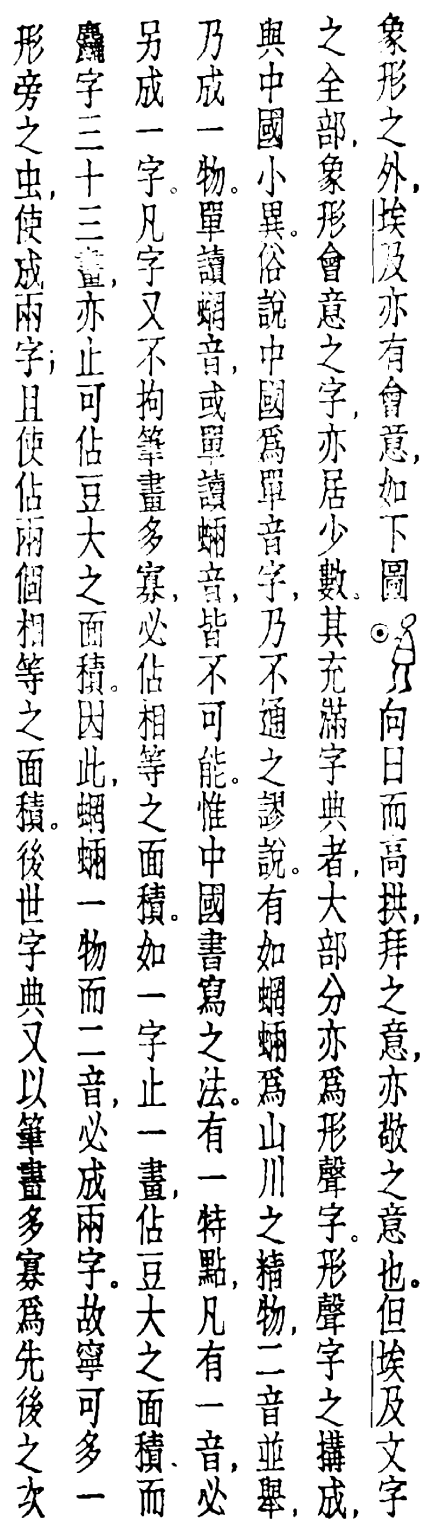 象形之外，埃及亦有會意，如下圖向日而高拱，拜之意，亦敬之意也。但埃及文字
之全部，象形會意之字，亦居少數。其充滿字典者，大部分亦爲形聲字。形聲字之搆成，
與中國小異。俗說中國爲單音字，乃不通之謬說。有如蝄蜽爲山川之精物，二音並舉，
乃成一物。單讀蝄音，或單讀蜽音，皆不可能。惟中國書寫之法。有一特點，凡有一音，必
另成一字。凡字又不拘筆畫多寡，必佔相等之面積。如一字止一畫，佔豆大之面積、而
字三十三畫，亦止可佔豆大之面積。因此，蝄蜽一物而二音，必成兩字。故寧可多一
形旁之虫，使成兩字；且使佔兩個相等之面積。後世字典又以筆畫多寡爲先後之次